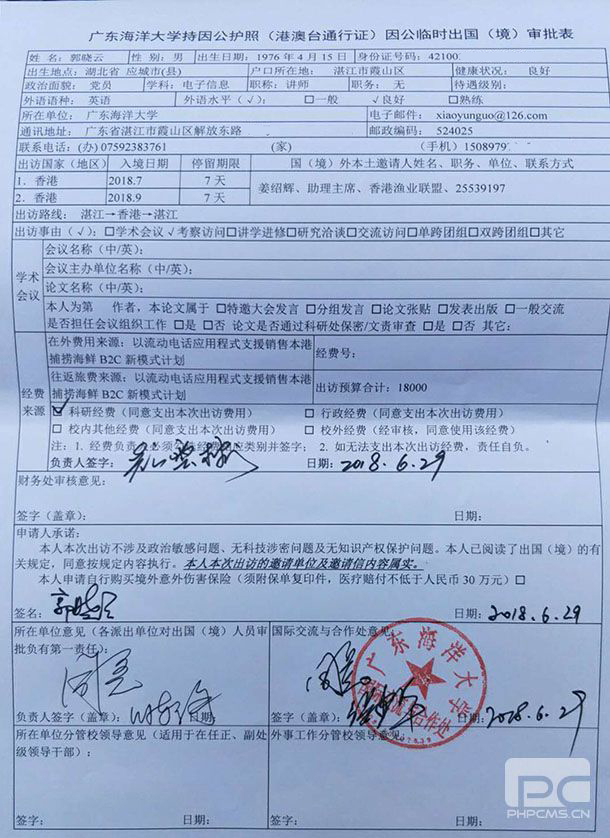 广东海洋大学持因公护照（港澳台通行证）因公临时出国（境）审批表
姓 名：郭晓云 性 别：男 出生日期：1976 年 4 月 15 日 身份证号码：42100
出生地点：湖北省 应城市(县) 户口所在地：湛江市霞山区 健康状况：良好
政治面貌：党员 学科：电子信息 职称：讲师 职务：无 待遇级别：
外语语种：英语 外语水平（√）：□一般 √良好 □熟练
所在单位：广东海洋大学 电子邮件：xiaoyunguo@126.com
通讯地址：广东省湛江市霞山区解放东路 邮政编码：524025
联系电话：(办) 07592383761 （家） （手机）1508979
出访国家（地区） 入境日期 停留期限 国（境）外本土邀请人姓名、职务、单位、联系方式
1．香港 2018.7 7 天
姜绍辉、助理主席、香港渔业联盟、25539197
2．香港 2018.9 7 天
出访路线：湛江→香港→湛江
出访事由（√）：□学术会议 √考察访问□讲学进修□研究洽谈□交流访问□单跨团组□双跨团组□其它
学术会议
会议名称（中/英）：
会议主办单位名称（中/英）：
论文名称（中/英）：
本人为第 作者，本论文属于 □特邀大会发言 □分组发言 □论文张贴 □发表出版 □一般交流
是否担任会议组织工作 □是 □否 论文是否通过科研处保密/文责审查 □是 □否 其它：
经费来源
在外费用来源：以流动电话应用程式支援销售本港捕捞海鲜 B2C 新模式计划
经费号：
往返旅费来源：以流动电话应用程式支援销售本港捕捞海鲜 B2C 新模式计划
出访预算合计：18000
☑ 科研经费（同意支出本次出访费用） □ 行政经费（同意支出本次出访费用）
□ 校内其他经费（同意支出本次出访费用） □ 校外经费（经审核，同意使用该经费）
注：1. 经费负责人必须勾选经费对应类别并签字； 2. 如无法支出本次出访经费，责任自负。
负责人签字： 日期：2018.6.29
财务处审核意见：
签字（盖章）： 日期：
申请人承诺：
本人本次出访不涉及政治敏感问题、无科技涉密问题及无知识产权保护问题。本人已阅读了出国（境）的有
关规定，同意按规定内容执行。本人本次出访的邀请单位及邀请信内容属实。
本人申请自行购买境外意外伤害保险（须附保单复印件，医疗赔付不低于人民币 30 万元）□
签名：郭晓云 日期：2018.6.29
所在单位意见（各派出单位对出国（境）人员审批负有第一责任）：
负责人签字（盖章）： 日期：
国际交流与合作处意见：
广东海洋大学
国际交流与合作处
签字（盖章）： 日期：2018.6.29
所在单位分管校领导意见（适用于在任正、副处级领导干部）：
签字： 日期：
外事工作分管校领导意见：
签字： 日期：
PC
PHPCMS.CN